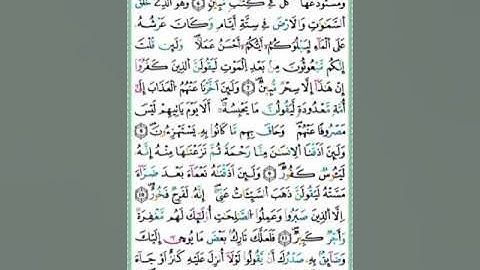 وَمُسْتَوْدَعَهَا ۚ كُلٌّ فِي كِتَٰبٍ مُّبِينٍ ۝٦ وَهُوَ الَّذِي خَلَقَ
السَّمَٰوَٰتِ وَالْأَرْضَ فِي سِتَّةِ أَيَّامٍ وَكَانَ عَرْشُهُ
عَلَى الْمَاءِ لِيَبْلُوَكُمْ أَيُّكُمْ أَحْسَنُ عَمَلًا ۗ وَلَئِن قُلْتَ
إِنَّكُم مَّبْعُوثُونَ مِنۢ بَعْدِ الْمَوْتِ لَيَقُولَنَّ الَّذِينَ كَفَرُوا
إِنْ هَٰذَا إِلَّا سِحْرٌ مُّبِينٌ ۝٧ وَلَئِنْ أَخَّرْنَا عَنْهُمُ الْعَذَابَ إِلَىٰ
أُمَّةٍ مَّعْدُودَةٍ لَّيَقُولُنَّ مَا يَحْبِسُهُ ۗ أَلَا يَوْمَ يَأْتِيهِمْ لَيْسَ
مَصْرُوفًا عَنْهُمْ وَحَاقَ بِهِم مَّا كَانُوا بِهِ يَسْتَهْزِءُونَ ۝٨
وَلَئِنْ أَذَقْنَا الْإِنسَٰنَ مِنَّا رَحْمَةً ثُمَّ نَزَعْنَٰهَا مِنْهُ إِنَّهُ
لَيَئُوسٌ كَفُورٌ ۝٩ وَلَئِنْ أَذَقْنَٰهُ نَعْمَاءَ بَعْدَ ضَرَّاءَ
مَسَّتْهُ لَيَقُولَنَّ ذَهَبَ السَّيِّـَٔاتُ عَنِّي ۚ إِنَّهُ لَفَرِحٌ فَخُورٌ ۝١٠
إِلَّا الَّذِينَ صَبَرُوا وَعَمِلُوا الصَّٰلِحَٰتِ أُولَٰئِكَ لَهُم مَّغْفِرَةٌ
وَأَجْرٌ كَبِيرٌ ۝١١ فَلَعَلَّكَ تَارِكٌۢ بَعْضَ مَا يُوحَىٰ إِلَيْكَ
وَضَائِقٌۢ بِهِ صَدْرُكَ أَن يَقُولُوا لَوْلَا أُنزِلَ عَلَيْهِ كَنزٌ أَوْ جَاءَ